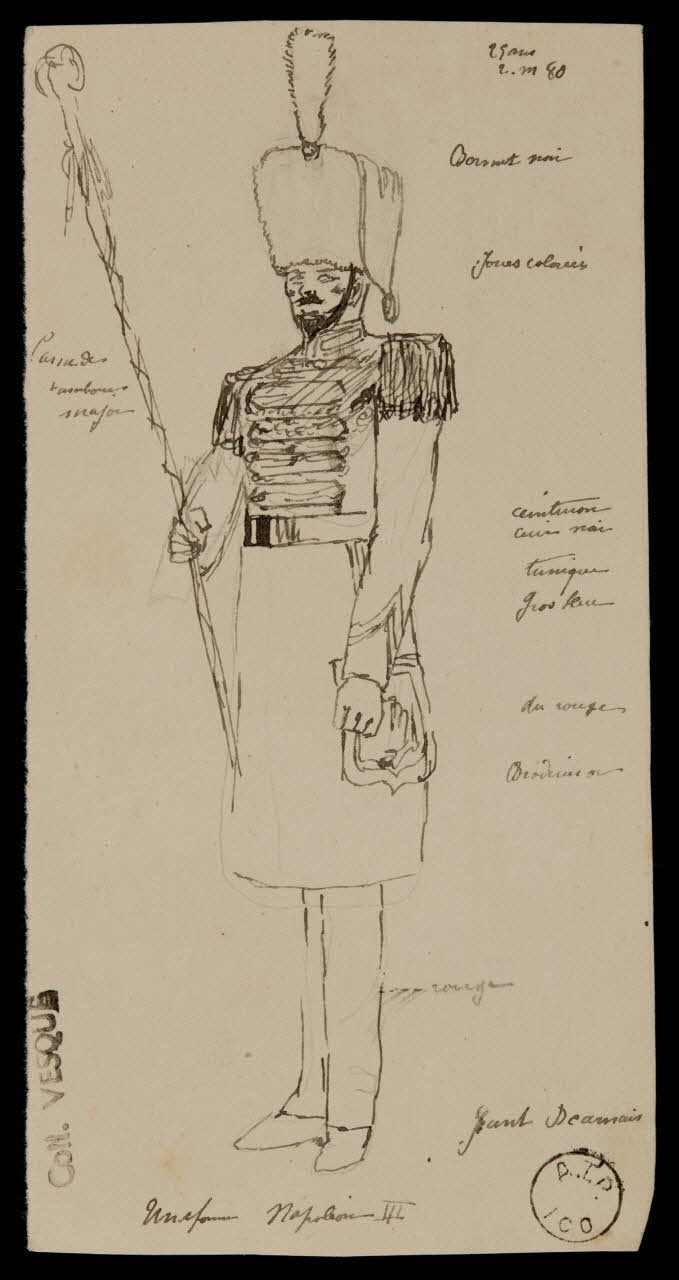 29 ans
2.m 80
Bonnet noir
Joues colorées
Canne de
tambour
major
ceinturon
cuir noir
tunique
gros bleu
du rouge
rouge
Géant Deamais
Uniforme Napoléon III
Coll. VESQUE
A.T.P.
ICO